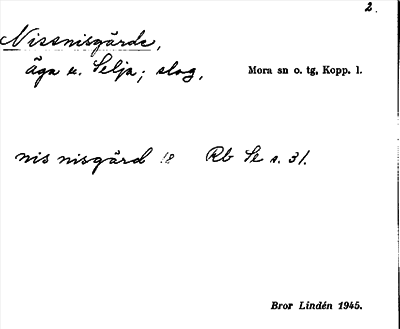 2.
Nissnisgärde,
äga u. Selja; slog, Mora sn o. tg, Kopp. l.
nis nisgärd !2 Rb Se s. 31.
Bror Lindén 1945.